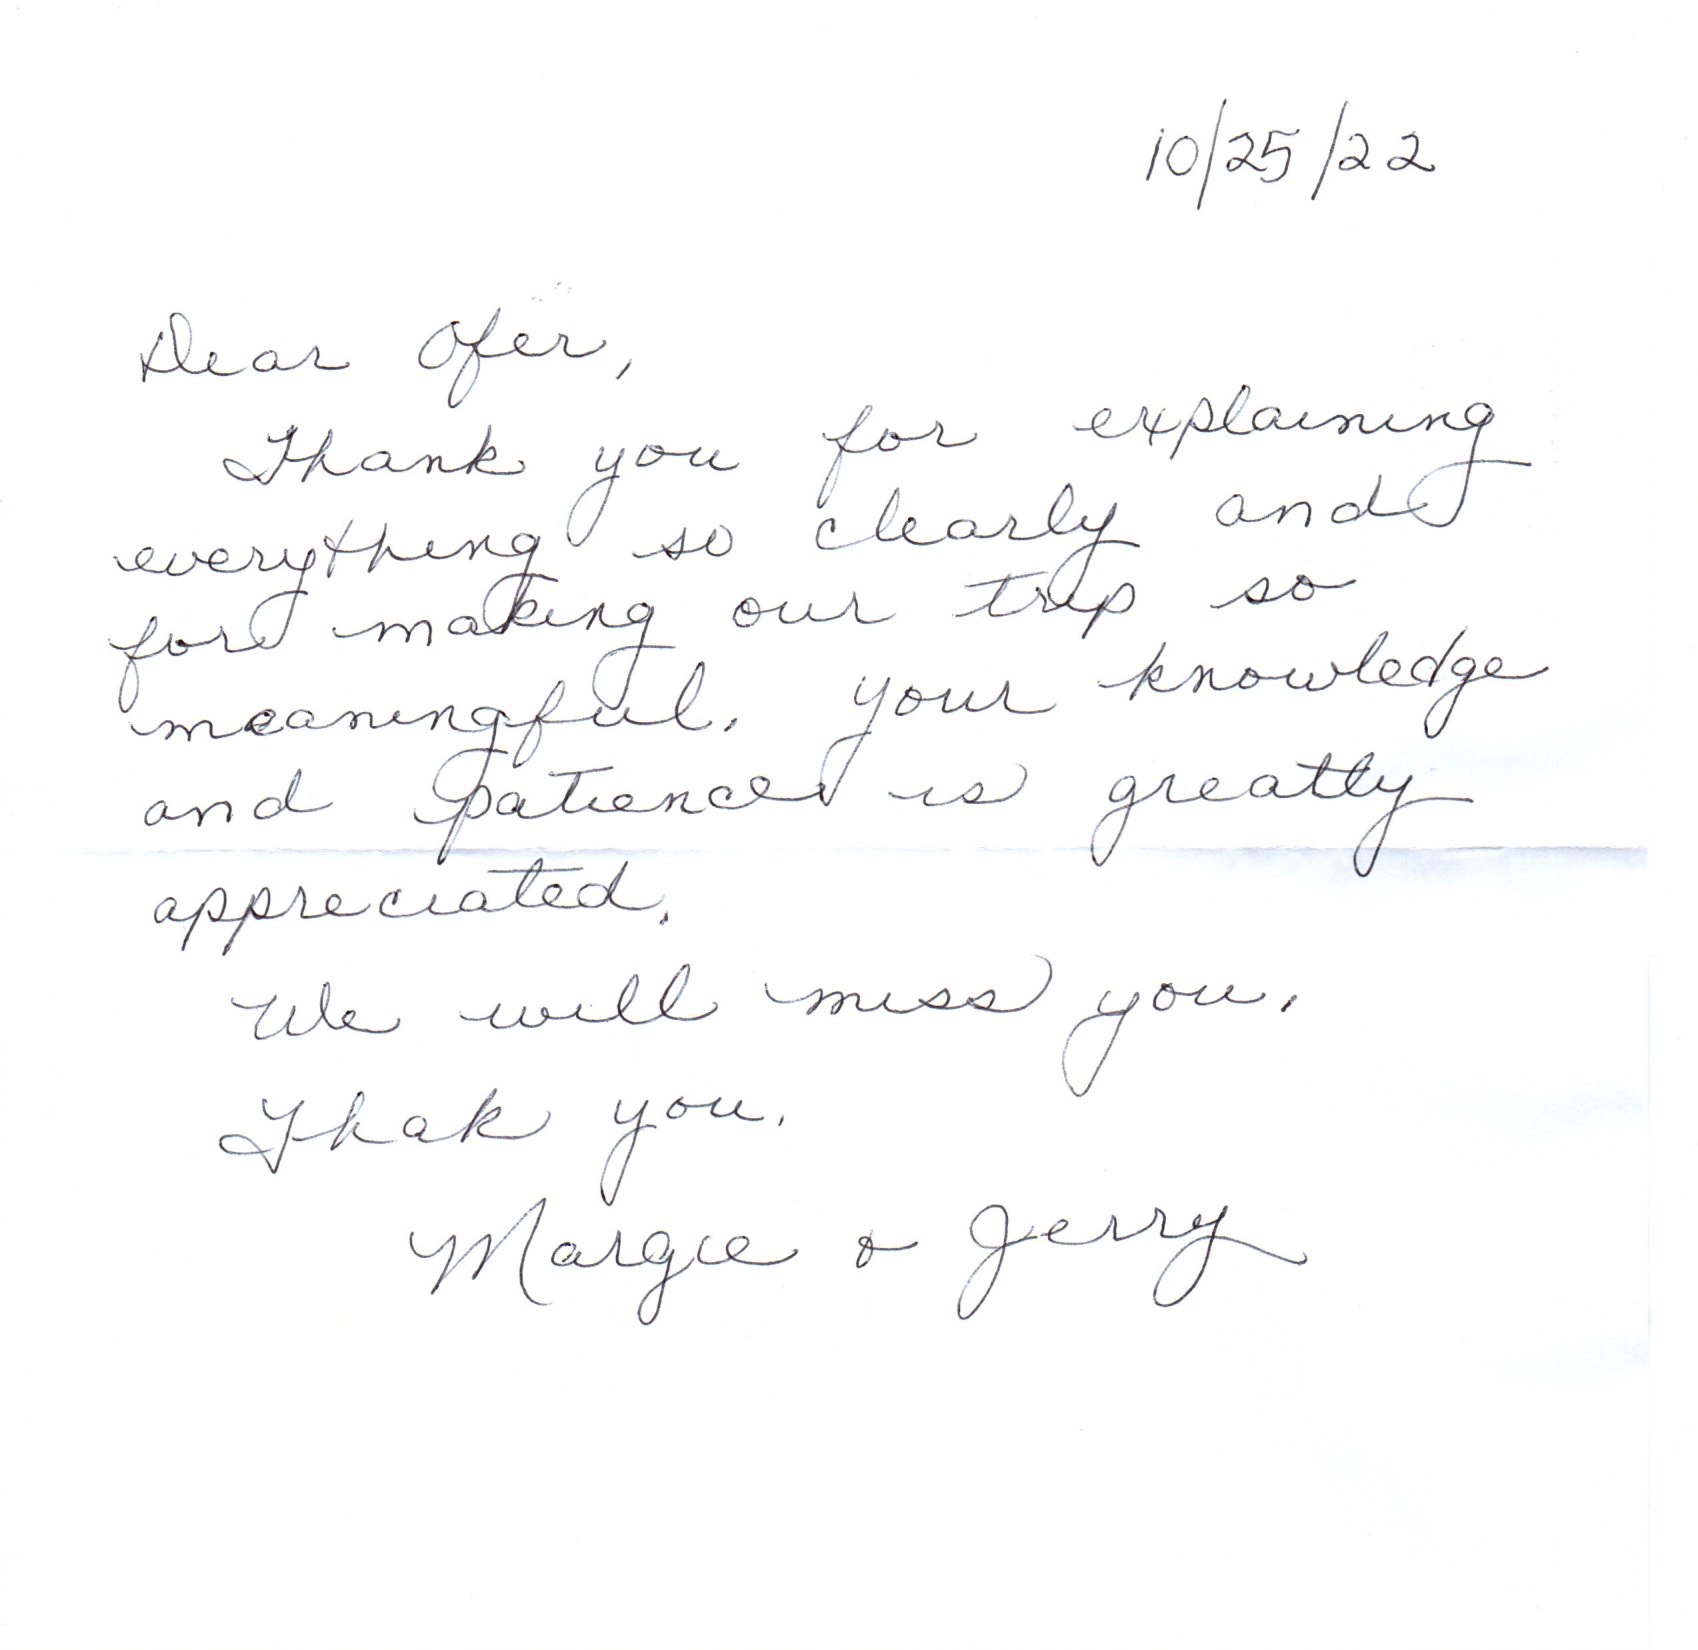 10/25/22
Dear Ofer,
Thank you for explaining
everything so clearly and
for making our trip so
meaningful. Your knowledge
and patience is greatly
appreciated.
We will miss you.
Thak you.
Margie & Jerry